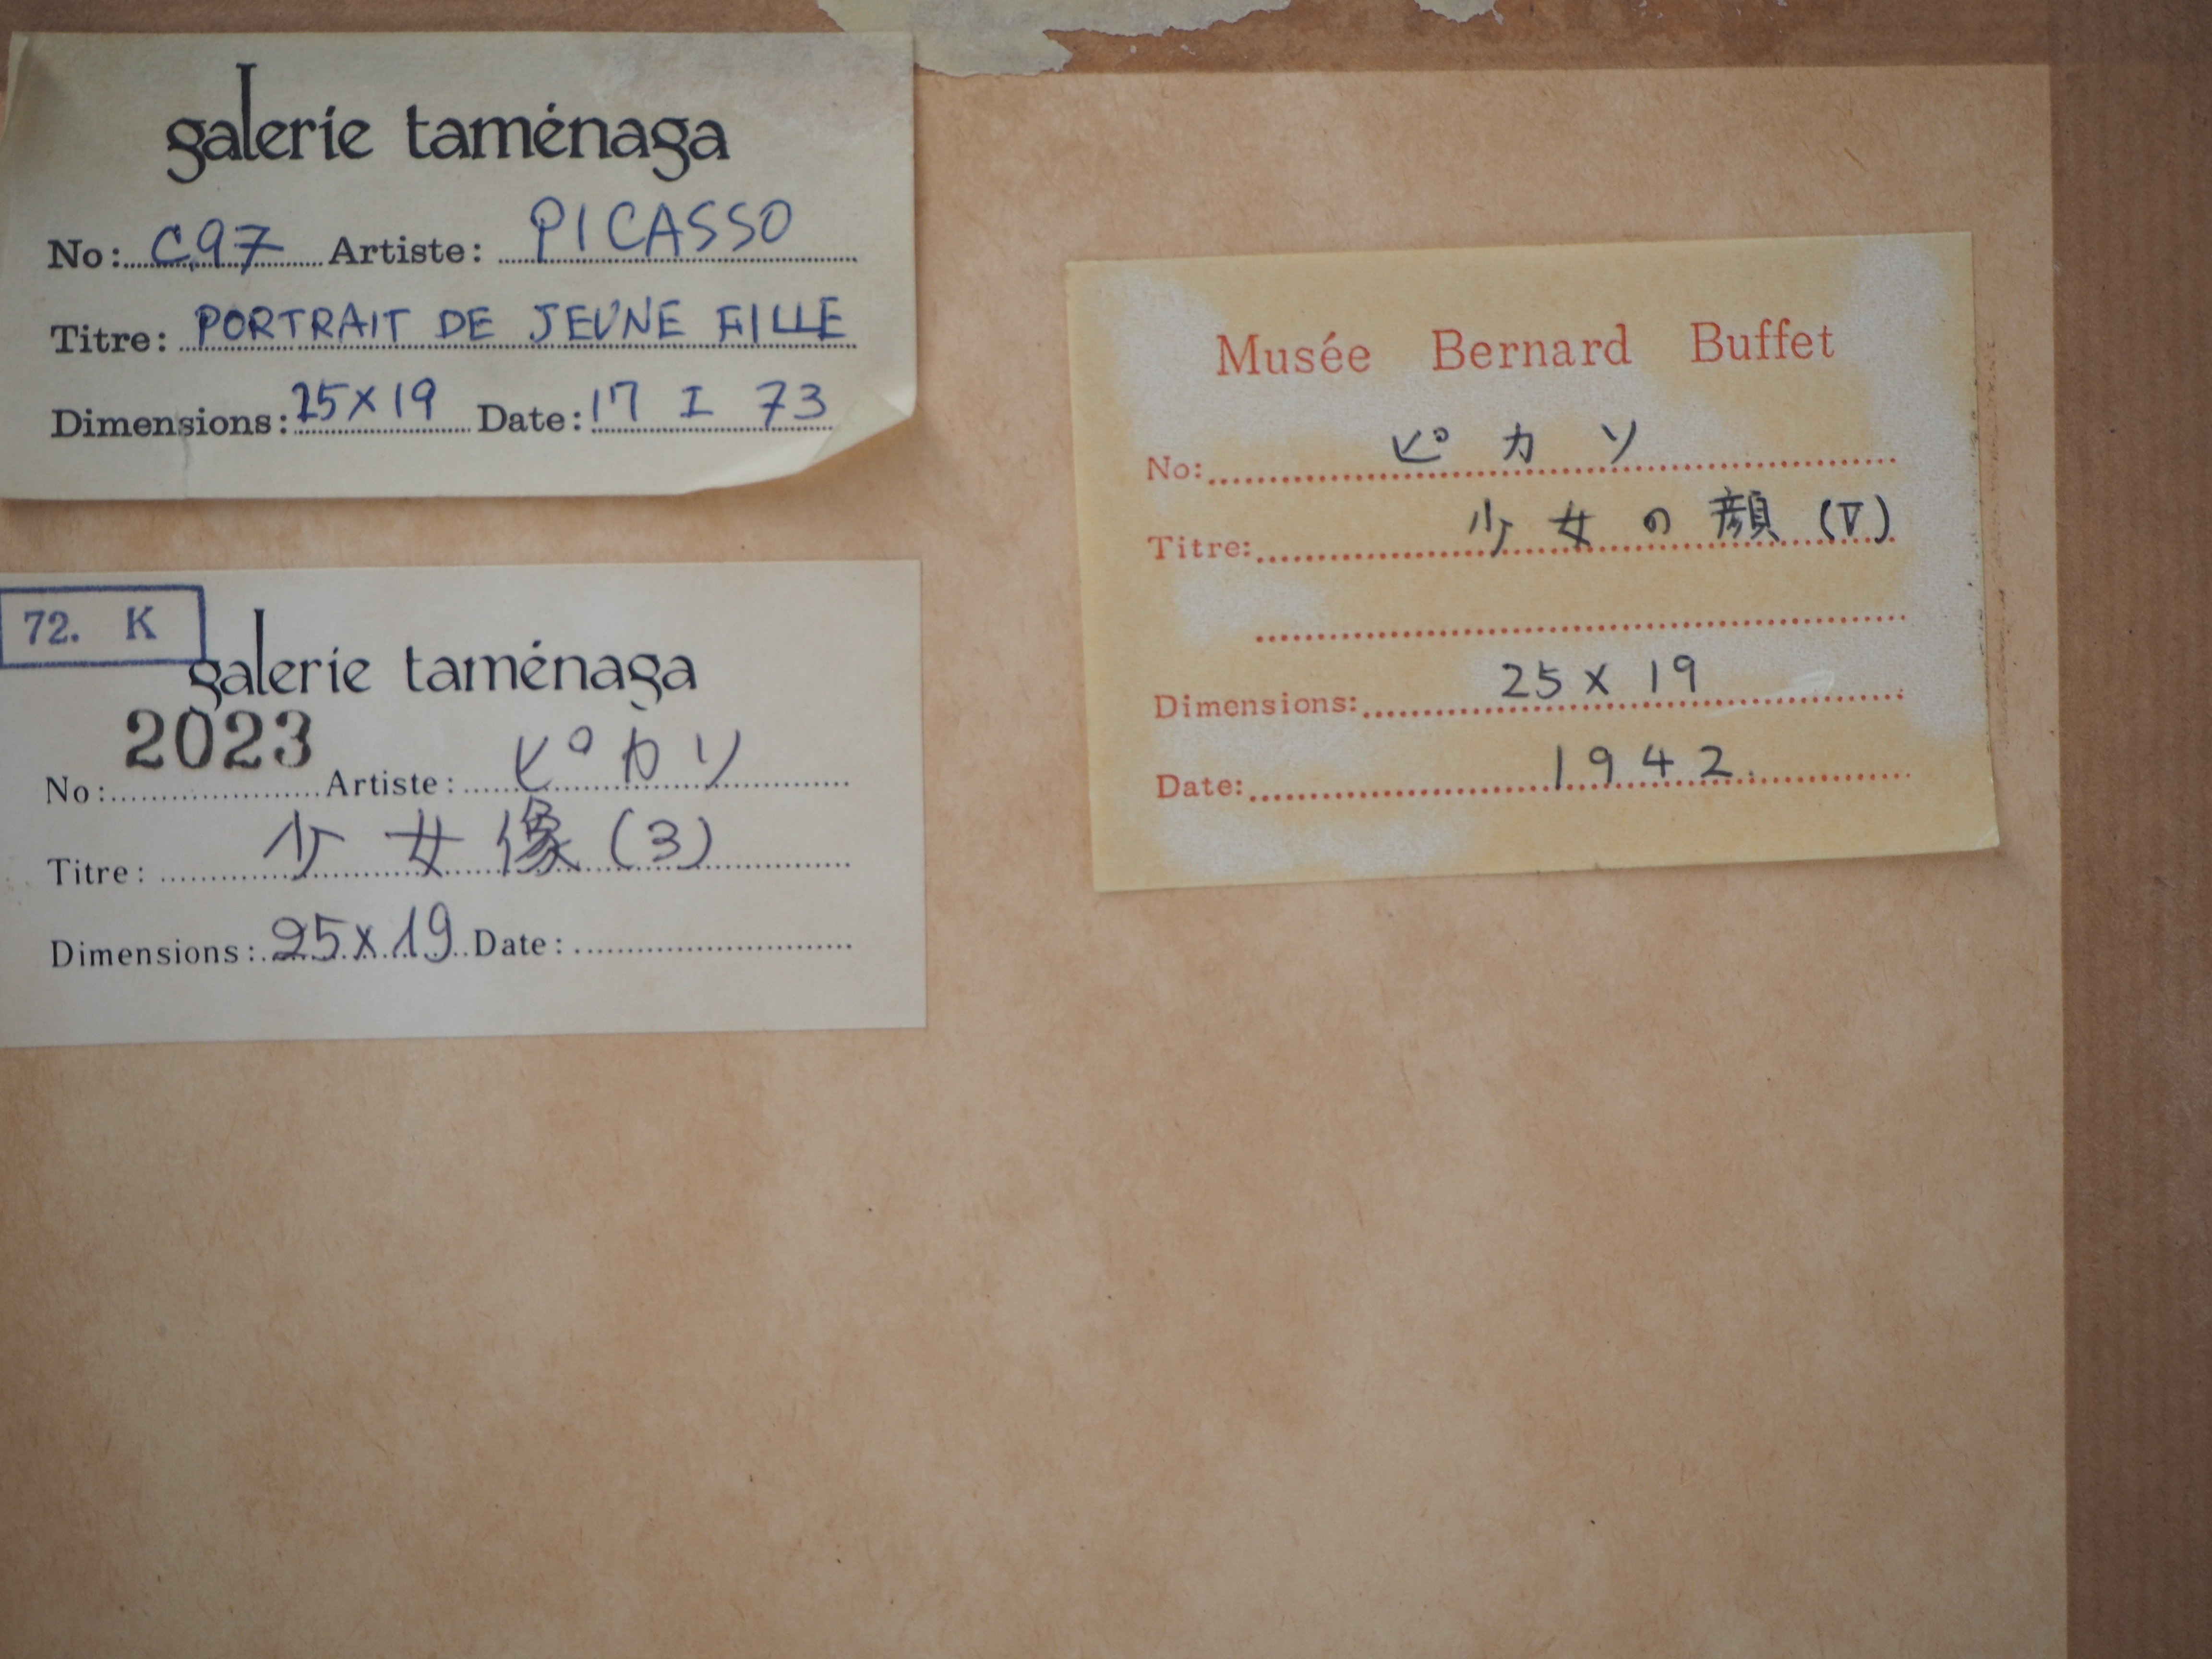 galerie taménaga
No: C97 Artiste: PICASSO
Titre: PORTRAIT DE JEUNE FILLE
Dimensions: 25×19 Date: 17 I 73
72. K
galerie taménaga
No: 2023 Artiste: ピカソ
Titre: 少女像(3)
Dimensions: 25×19 Date:
Musée Bernard Buffet
No: ピカソ
Titre: 少女の顔(V)
Dimensions: 25×19
Date: 1942.